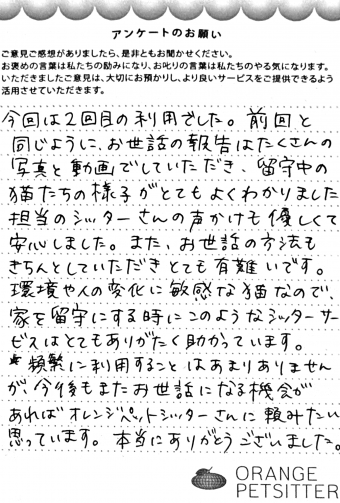 アンケートのお願い
ご意見ご感想がありましたら、是非ともお聞かせください。
お褒めの言葉は私たちの励みになり、お叱りの言葉は私たちのやる気になります。
いただきましたご意見は、大切にお預かりし、より良いサービスをご提供できるよう
活用させていただきます。
今回は2回目の利用でした。前回と
同じように、お世話の報告はたくさんの
写真と動画でしていただき、留守中の
猫たちの様子がとてもよくわかりました
担当のシッターさんの声かけも優しくて
安心しました。また、お世話の方法も
きちんとしていただきとても有難いです。
環境や人の変化に敏感な猫なので、
家を留守にする時にこのようなシッターサー
ビスはとてもありがたく助かっています。
*頻繁に利用することはあまりありません
が、今後もまたお世話になる機会が
あればオレンジペットシッターさんに頼みたい
思っています。本当にありがとうございました。
ORANGE
PETSITTER